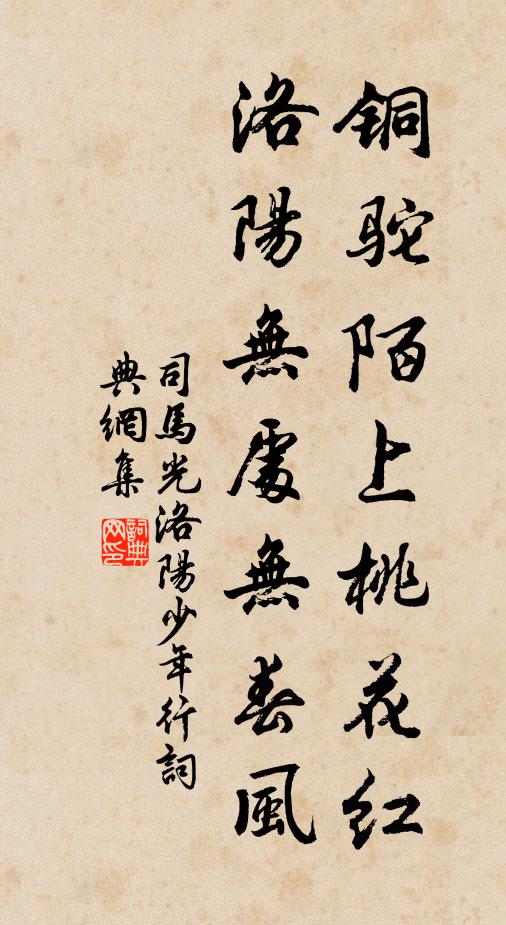 铜驼陌上桃花红
洛陽無處無春風
司馬光洛陽少年行詞
典網集
詞典網印